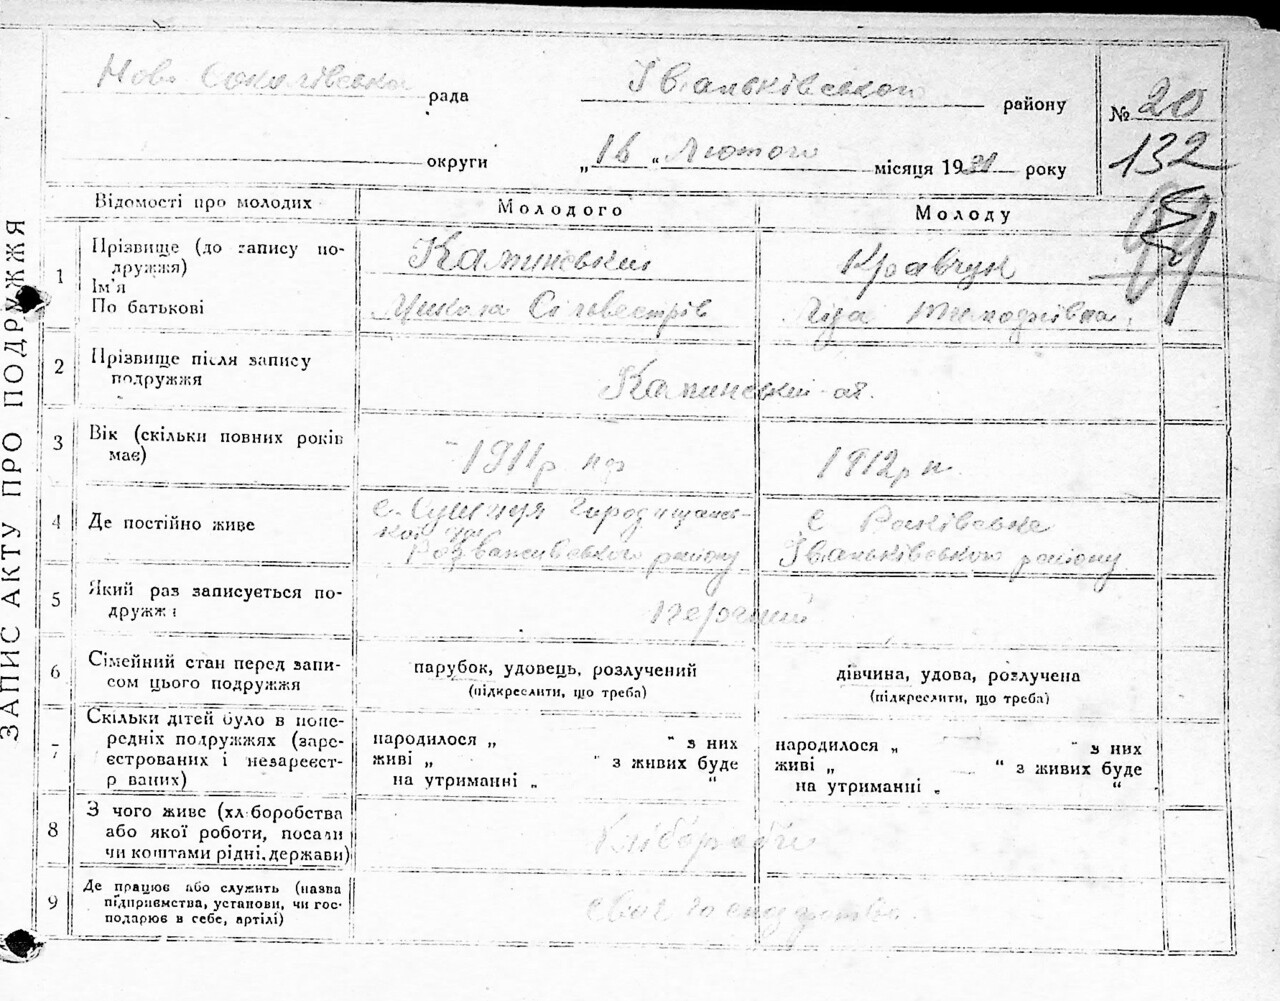 ЗАПИС АКТУ ПРО ПОДРУЖЖЯ
Ново Соколівська рада
Іваньківського району
№ 20
132
округи
„16“ Лютого місяця 1931 року
Відомості про молодих
Молодого
Молоду
1
Прізвище (до запису по-
дружжя)
Ім'я
По батькові
Калинський
Сільвестрів
Кравчук
Тимофіївна
2
Прізвище після запису
подружжя
Калинський -ая.
3
Вік (скільки повних років
має)
1911р нр
1912р н.
4
Де постійно живе
с. Городищансь-
кої
Розважівського району
с
Іваньківського району
5
Який раз записується по-
дружжі
перший
6
Сімейний стан перед запи-
сом цього подружжя
парубок, удовець, розлучений
(підкреслити, що треба)
дівчина, удова, розлучена
(підкреслити, що треба)
7
Скільки дітей було в попе-
редніх подружжях (заре-
єстрованих і незареєст-
р ваних)
народилося „ “ з них
живі „ “ з живих буде
на утриманні „ “
народилося „ “ з них
живі „ “ з живих буде
на утриманні „ “
8
З чого живе (хл боробства
або якої роботи, посади
чи коштами рідні, держави)
9
Де працює або служить (назва
підприємства, установи, чи гос-
подарює в себе, артілі)